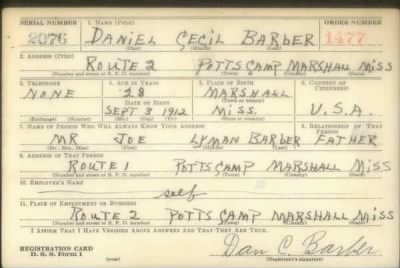 SERIAL NUMBER 1. NAME (Print) ORDER NUMBER
2076 DANIEL CECIL BARBER 1477
(First) (Middle) (Last)
2. ADDRESS (Print)
ROUTE 2 POTTS CAMP MARSHALL MISS
(Number and street or R. F. D. number) (Town) (County) (State)
3. TELEPHONE 4. AGE IN YEARS 5. PLACE OF BIRTH 6. COUNTRY OF CITIZENSHIP
NONE 28 MARSHALL
DATE OF BIRTH (Town or county)
SEPT 3 1912 MISS. U.S.A.
(Exchange) (Number) (Mo.) (Day) (Yr.) (State or country)
7. NAME OF PERSON WHO WILL ALWAYS KNOW YOUR ADDRESS 8. RELATIONSHIP OF THAT PERSON
MR JOE LYMAN BARBER FATHER
(Mr., Mrs., Miss) (First) (Middle) (Last)
9. ADDRESS OF THAT PERSON
ROUTE 1 POTTSCAMP MARSHALL MISS
(Number and street or R. F. D. number) (Town) (County) (State)
10. EMPLOYER'S NAME
self
11. PLACE OF EMPLOYMENT OR BUSINESS
ROUTE 2 POTTS CAMP MARSHALL MISS
(Number and street or R. F. D. number) (Town) (County) (State)
I AFFIRM THAT I HAVE VERIFIED ABOVE ANSWERS AND THAT THEY ARE TRUE.
REGISTRATION CARD
D. S. S. Form 1 (over) Dan C. Barber
(Registrant's signature)